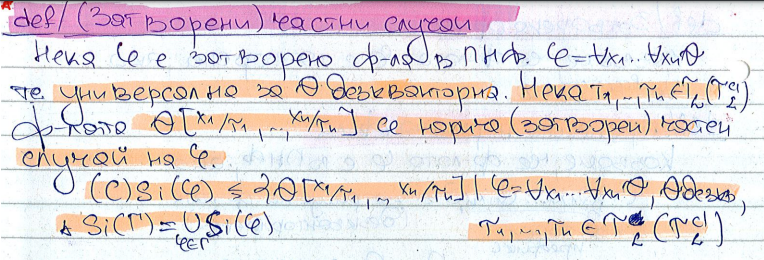 def/ (Затворени) частни случаи
Нека φ е затворена ф-ла в ПНФ. φ=∀x₁...∀xₙθ
те универсална за θ безкванторна. Нека τ₁,..,τₙ ∈ τ_L (τ_L^cl)
ф-лата θ[x₁/τ₁,.., xₙ/τₙ] се нарича (затворен) частен
случай на φ.
(C)Si(φ) ⩽ {θ[x₁/τ₁,.., xₙ/τₙ] | φ=∀x₁...∀xₙθ, θ безкв,
* Si(Γ) = ∪_{φ∈Γ} Si(φ) τ₁,..,τₙ ∈ τ_L (τ_L^cl)}